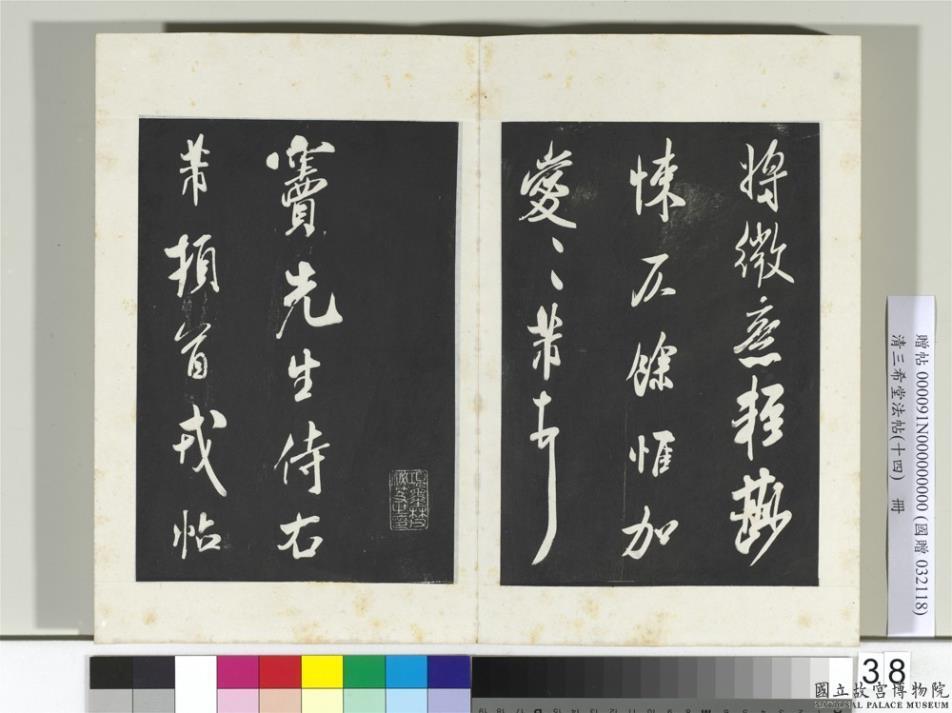 將微意輕尠
悚仄餘惟加
愛〻芾
竇先生侍右
芾頓首戎帖
贈帖 000091N000000000 (國贈 032118)
清三希堂法帖(十四) 冊
38
國立故宮博物院
NATIONAL PALACE MUSEUM